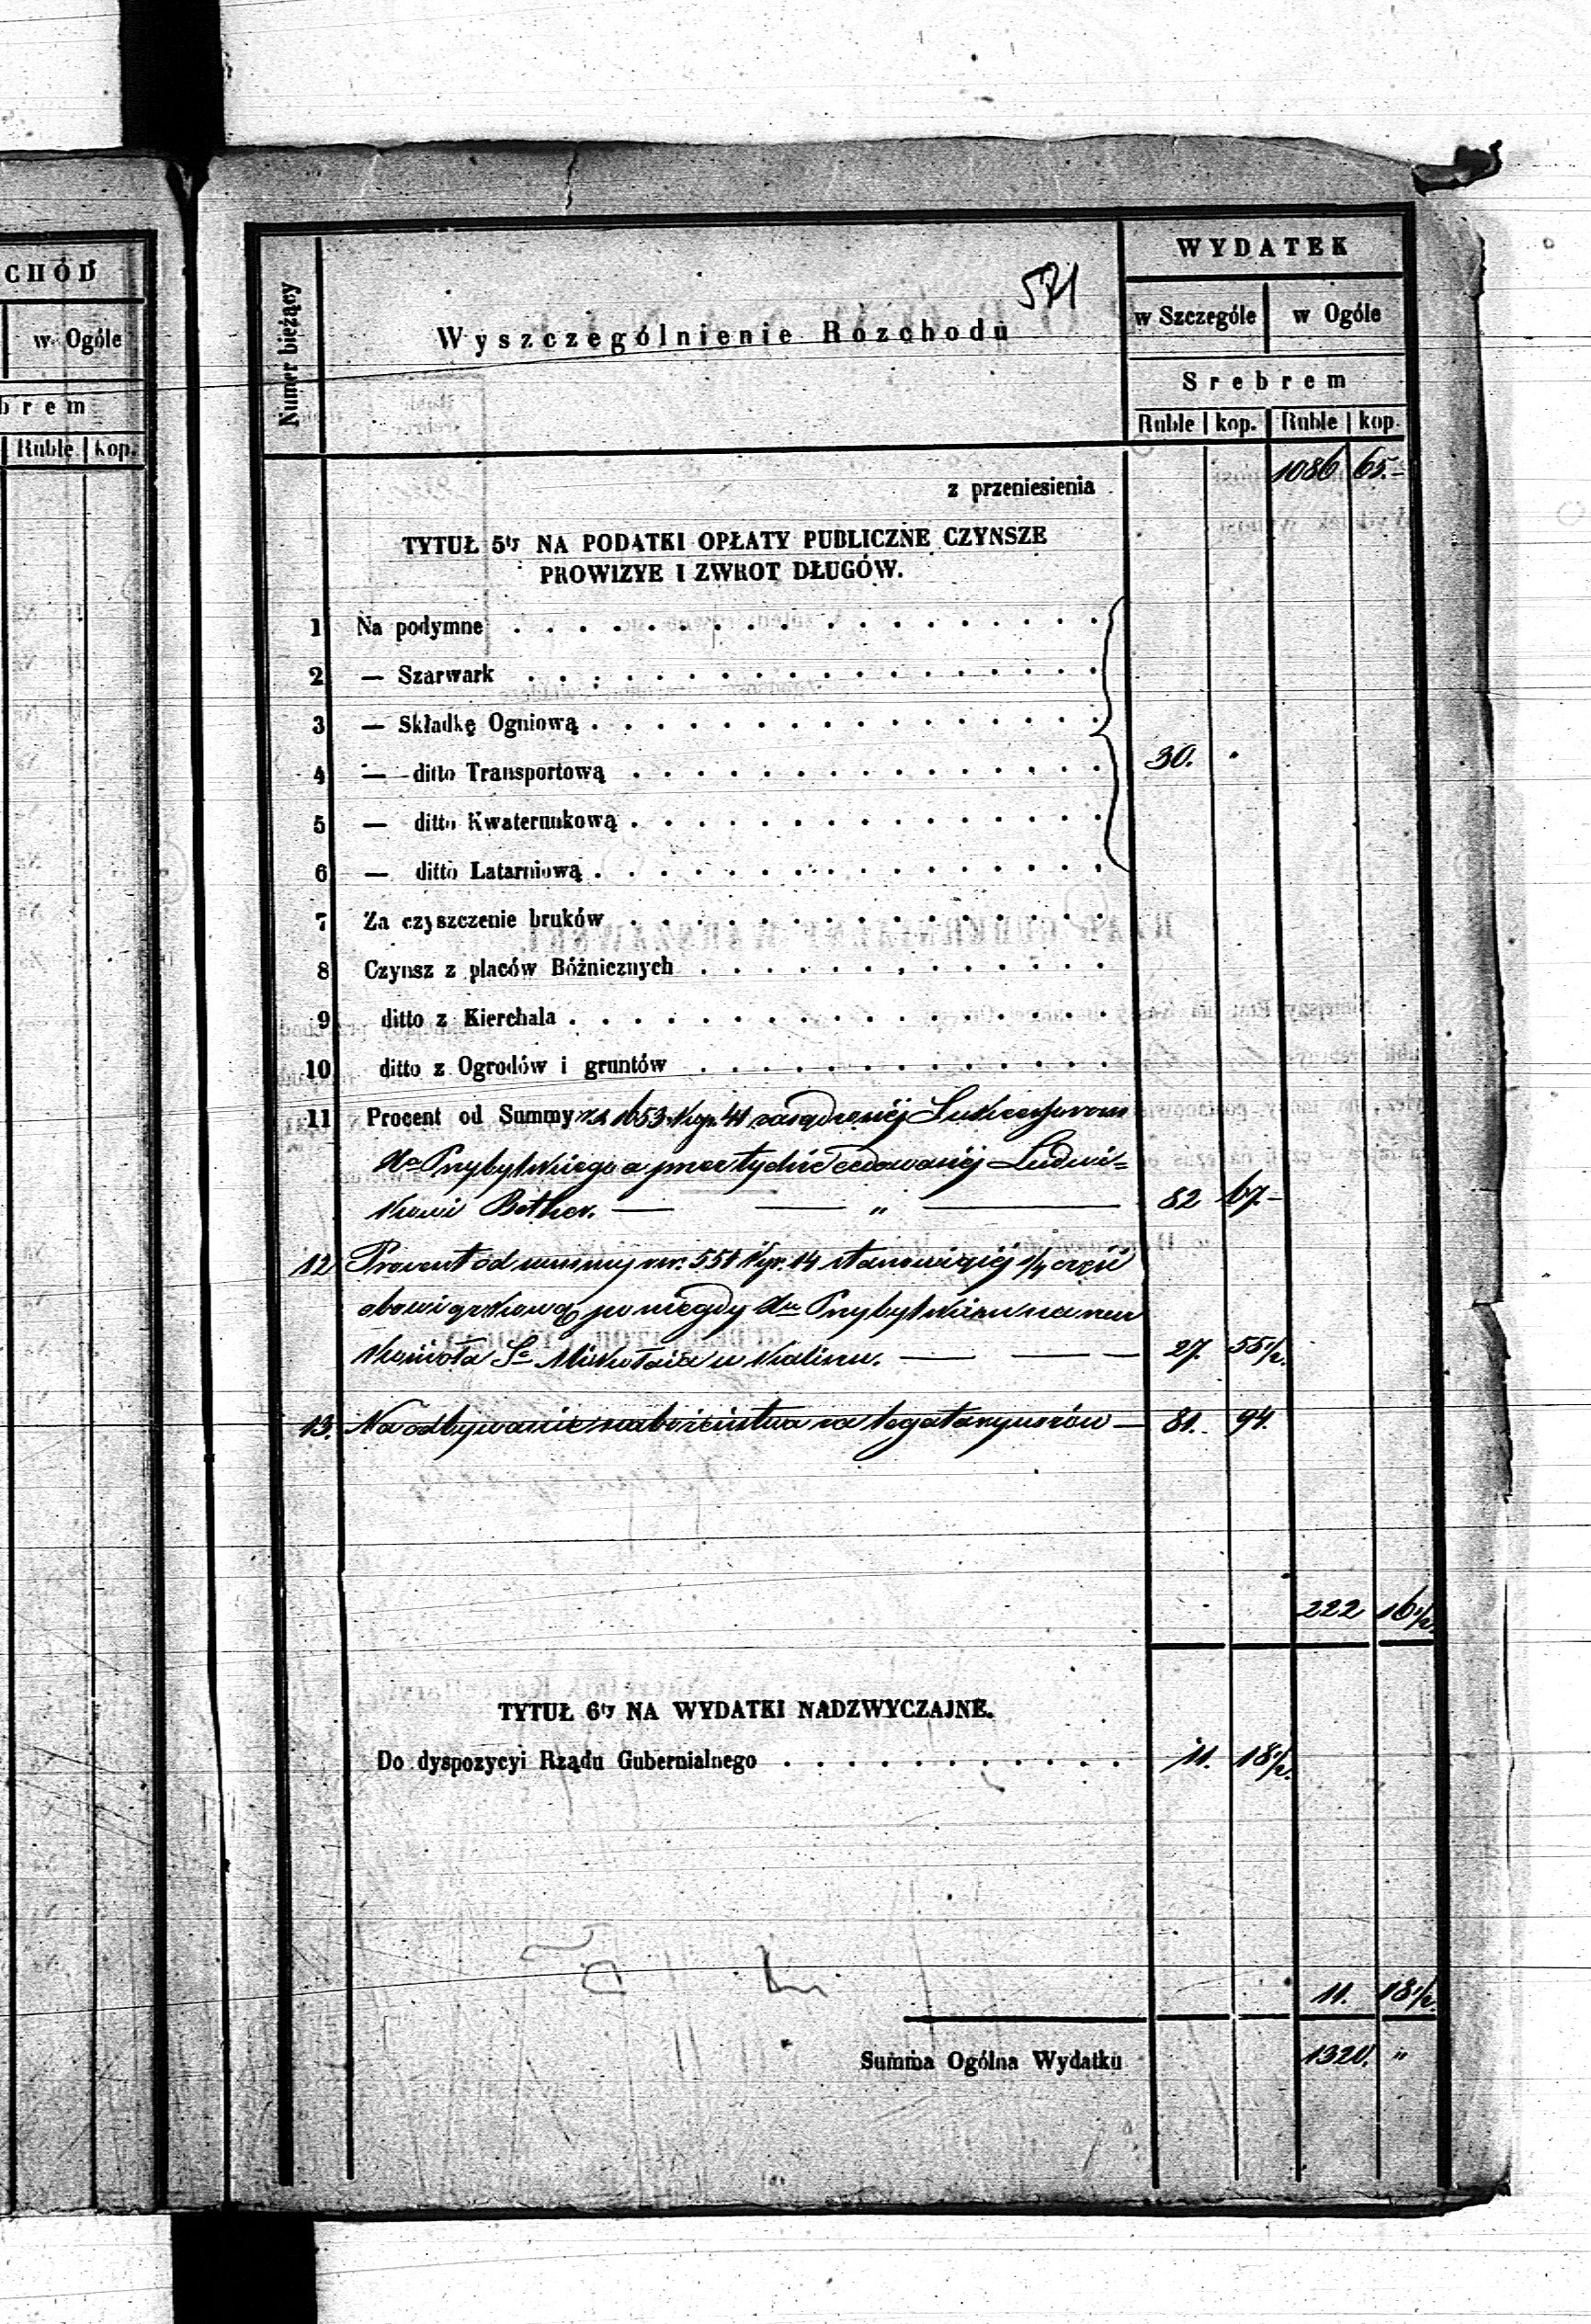 CHÓD
w Ogóle
brem
Ruble kop.
571
Numer bieżący
Wyszczególnienie Rozchodu
WYDATEK
w Szczególe w Ogóle
Srebrem
Ruble kop. Ruble kop.
z przeniesienia 1086 65.-
TYTUŁ 5ty NA PODATKI OPŁATY PUBLICZNE CZYNSZE
PROWIZYE I ZWROT DŁUGÓW.
1 Na podymne
2 — Szarwark
3 — Składkę Ogniową
4 — ditto Transportową 30. "
5 — ditto Kwaterunkową
6 — ditto Latarniową
7 Za czyszczenie bruków
8 Czynsz z placów Bóżnicznych
9 ditto z Kierchala
10 ditto z Ogrodów i gruntów
11 Procent od Summy rs. 1653 kop. 41 zasądzonéj Sukcessorom
Xa Przybylskiego a przez tychże cedowanéj Ludwi=
kowi Bether. — — " — 82 67.-
12 Procent od summy rsr. 551 kop. 14 stanowiącéj 1/4 część
obowiązkową po niegdy Xu Przybylskim na rzecz
Kościoła Sgo Mikołaia w Kaliszu. — — — 27. 55 1/2.
13. Na odbywanie nabożeństwa za legataryuszów — 81. 94.
222 16 1/2.
TYTUŁ 6ty NA WYDATKI NADZWYCZAJNE.
Do dyspozycyi Rządu Gubernialnego 11. 18 1/2.
11. 18 1/2.
Summa Ogólna Wydatku 1320. "